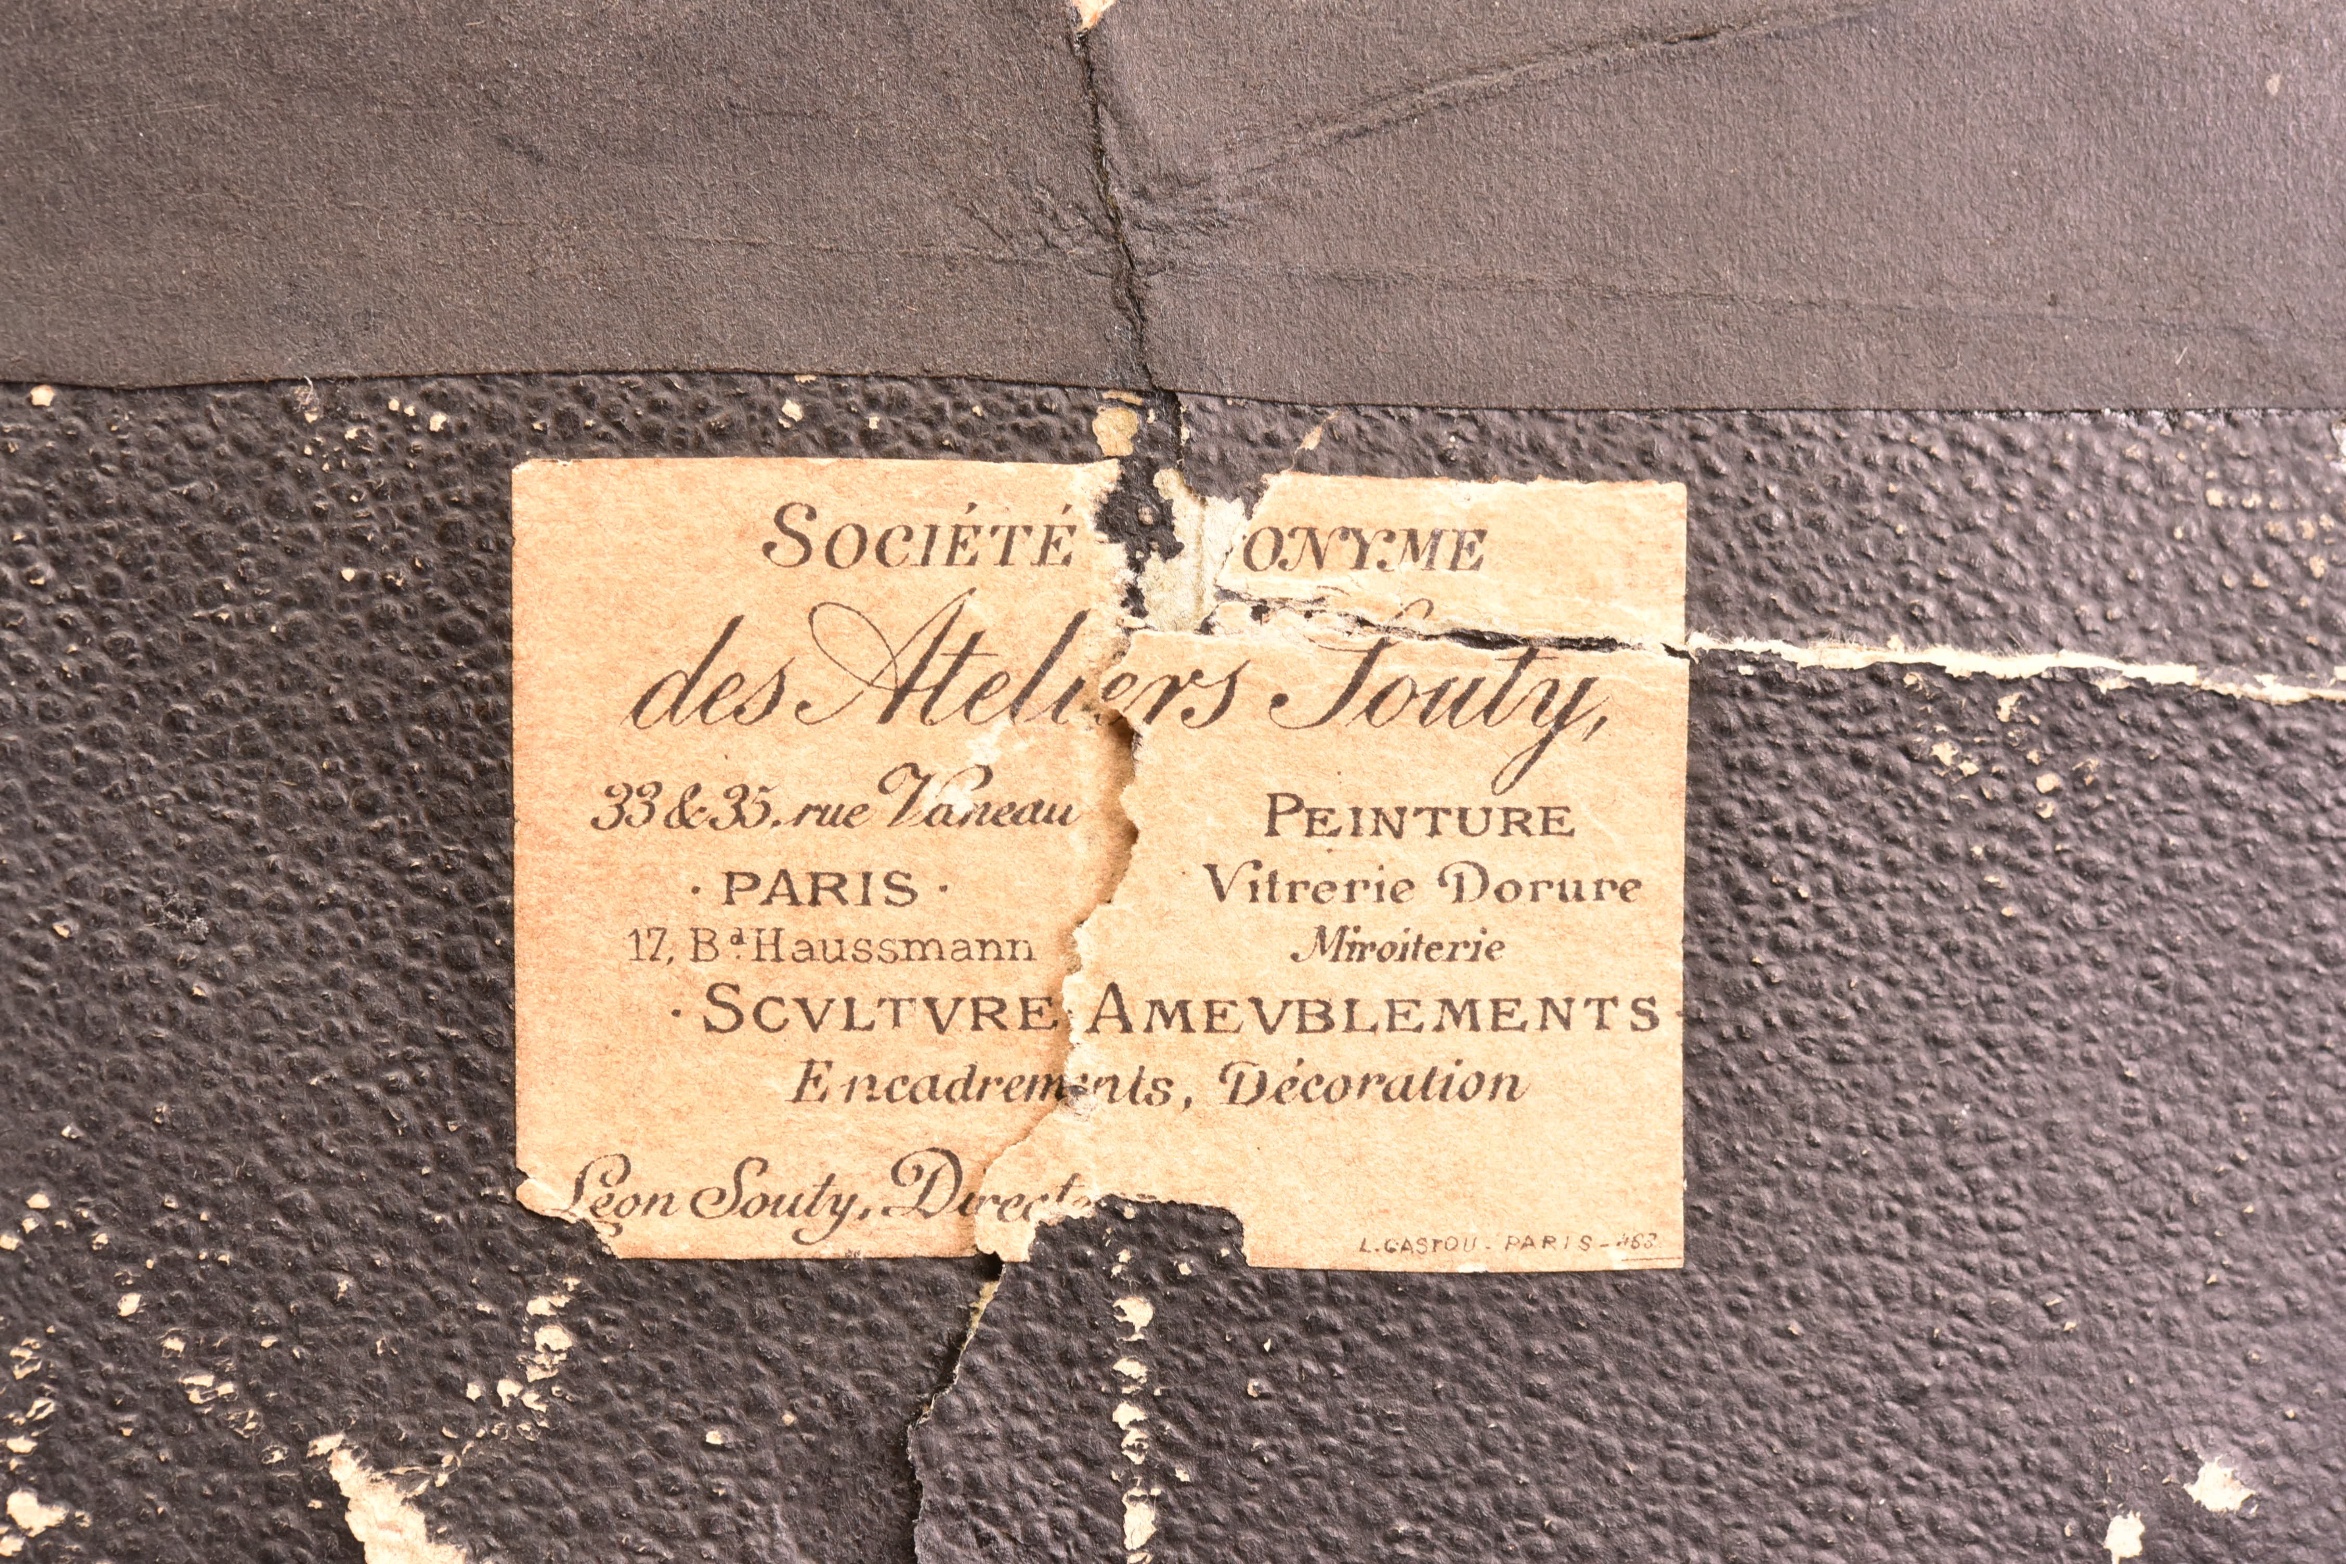 SOCIÉTÉ ONYME
des Ateliers Souty,
33 & 35, rue Vaneau
· PARIS ·
17, Bd Haussmann
PEINTURE
Vitrerie Dorure
Miroiterie
· SCVLTVRE AMEVBLEMENTS ·
Encadrements, Décoration
Léon Souty, Directe
L. GASTOU - PARIS -